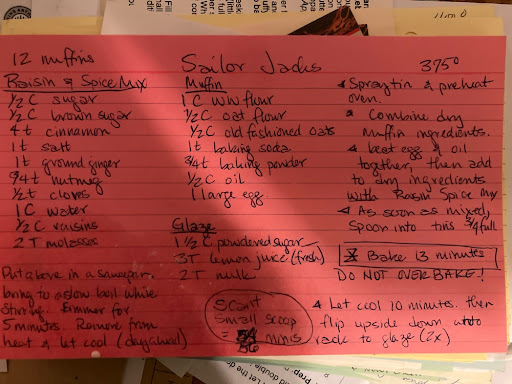 12 muffins
Sailor Jacks
375°
Raisin & Spice Mix
½ C sugar
½ C brown sugar
4 t cinnamon
1 t salt
1 t ground ginger
¾ t nutmeg
½ t cloves
1 C water
½ C raisins
2 T molasses
Put above in a saucepan.
bring to a slow boil while
stirring. Simmer for
5 minutes. Remove from
heat & let cool (day ahead)
Muffin
1 C ww flour
½ C oat flour
½ C old fashioned oats
1 t baking soda
¾ t baking powder
½ C oil
1 large egg
Glaze
1 ½ C powdered sugar
3 T lemon juice (fresh)
2 T milk
Scant
small scoop
=
36 minis
Spray tin & preheat
oven.
Combine dry
muffin ingredients.
beat egg & oil
together, then add
to dry ingredients
with Raisin Spice Mix
As soon as mixed,
spoon into tins ¾ full
Bake 13 minutes
DO NOT OVERBAKE!
Let cool 10 minutes. then
flip upside down onto
rack to glaze (2x)